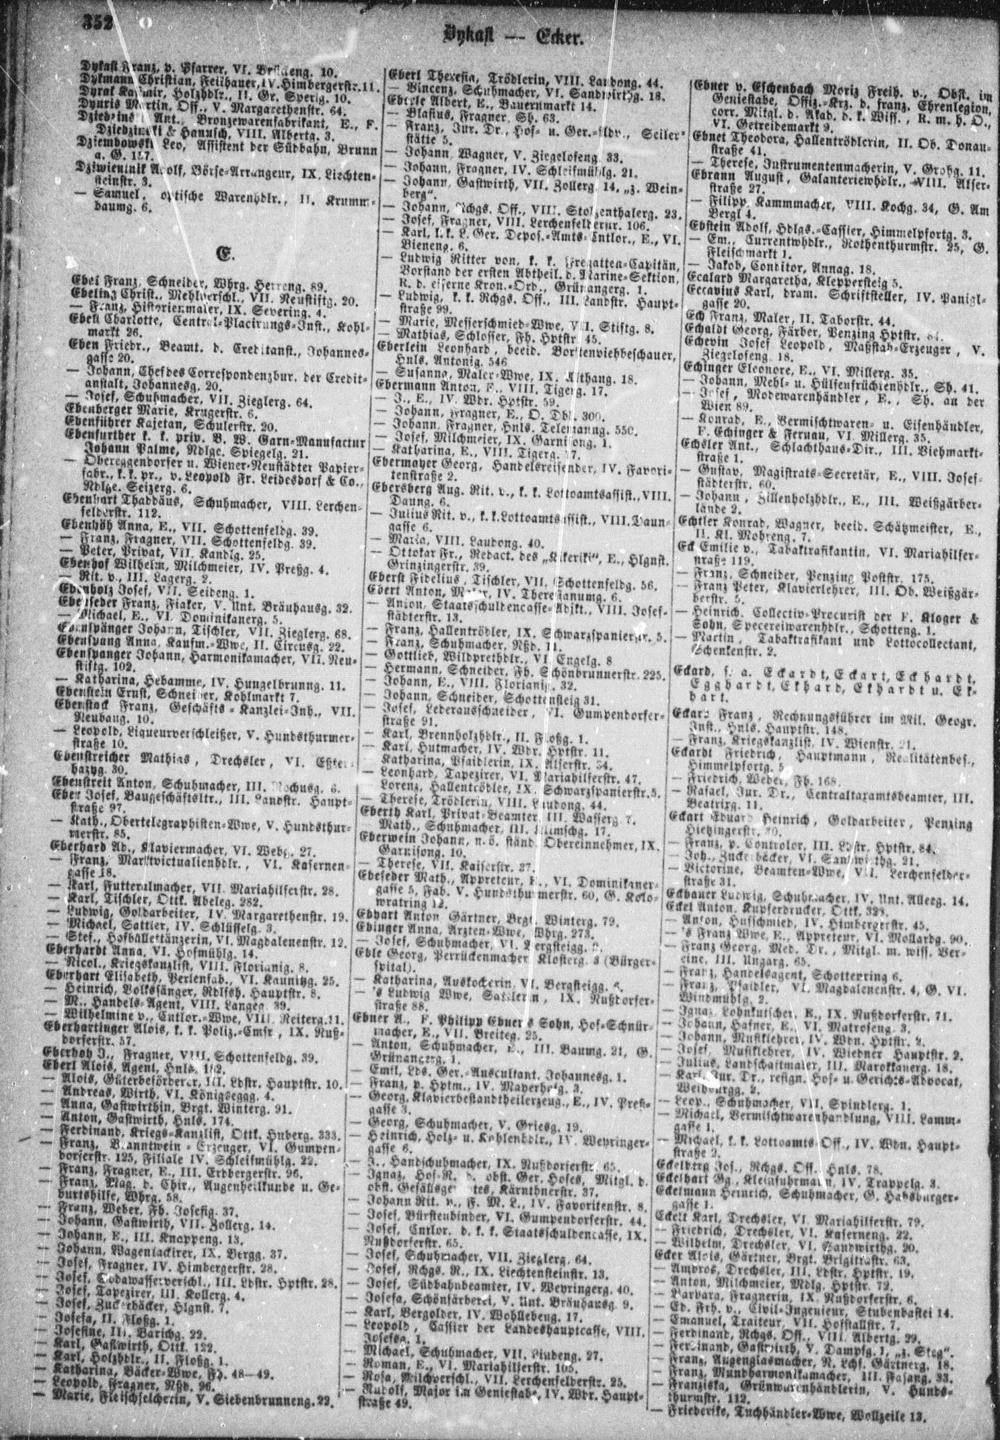 352
Dykast — Ecker.
Dykast Franz, p. Pfarrer, VI. 10.
Dykmann Christian, Feilhauer, IV. Himbergerstr. 11.
Dyrat Holzhdlr., II. Gr. Sperlg. 10.
Dyuris Martin, Off., V. Margarethenstr. 64.
Ant., Bronzewarenfabrikant, E., F.
& Hannsch, VIII. Albertg. 3.
Dziembowski Leo, Assistent der Südbahn, Brunn
a. G. 157.
Dziwientnik Adolf, Börse-Arrangeur, IX. Liechten-
steinstr. 3.
— Samuel, optische Warenhdlr., II. Krumm-
baumg. 6.
E.
Ebel Franz, Schneider, Whrg. Herreng. 89.
Ebeling Christ., Mehlverschl., VII. Neustiftg. 20.
— Franz, Historienmaler, IX. Severing. 4.
Ebell Charlotte, Central-Placirungs-Inst., Kohl-
markt 26.
Eben Friedr., Beamt. d. Creditanst., Johannes-
gasse 20.
— Johann, Chef des Correspondenzbur. der Credit-
anstalt, Johannesg. 20.
— Josef, Schuhmacher, VII. Zieglerg. 64.
Ebenberger Marie, Krugerstr. 6.
Ebenführer Kajetan, Schulerstr. 20.
Ebenfurther k. k. priv. B. W. Garn-Manufactur
Johann Palme, Ndlge. Spiegelg. 21.
— Obereggendorfer u. Wiener-Neustädter Papier-
fabr., k. k. pr., v. Leopold Fr. Leidesdorf & Co.,
Ndlge. Seizerg. 6.
Ebenhart Thaddäus, Schuhmacher, VIII. Lerchen-
felderstr. 112.
Ebenhöh Anna, E., VII. Schottenfeldg. 39.
— Franz, Fragner, VII. Schottenfeldg. 39.
— Peter, Privat, VII. Kandlg. 25.
Ebenhof Wilhelm, Milchmeier, IV. Preßg. 4.
— Rit. v., III. Lagerg. 2.
Ebenholz Josef, VII. Seideng. 1.
Franz, Fiaker, V. Unt. Bräuhausg. 32.
— Michael, E., VI. Dominikanerg. 5.
Johann, Tischler, VII. Zieglerg. 68.
Ebenspang Anna, Kaufm.-Wwe, II. Circusg. 22.
Ebenspanger Johann, Harmonikamacher, VII. Neu-
stiftg. 102.
— Katharina, Hebamme, IV. Hungelbrunng. 11.
Ebenstein Ernst, Schneider, Kohlmarkt 7.
Ebenstock Franz, Geschäfts-Kanzlei-Inh., VII.
Neubaug. 10.
— Leopold, Liqueurverschleißer, V. Hundsthurmer-
straße 10.
Ebenstreicher Mathias, Drechsler, VI.
30.
Ebenstreit Anton, Schuhmacher, III. Rochusg. 6.
Eber Josef, Baugeschäftsltr., III. Landstr. Haupt-
straße 97.
— Kath., Obertelegraphisten-Wwe, V. Hundsthur-
merstr. 85.
Eberhard Ad., Klaviermacher, VI. 27.
— Franz, Marktvictualienhdlr., VI. Kasernen-
gasse 18.
— Karl, Futteralmacher, VII. Mariahilferstr. 28.
— Karl, Tischler, Ottk. Abeleg. 282.
— Ludwig, Goldarbeiter, IV. Margarethenstr. 19.
— Michael, Sattler, IV. Schlüsselg. 3.
— Stef., Hofballettänzerin, VI. Magdalenenstr. 12.
Eberhardt Anna, VI. Hofmühlg. 14.
— Nicol., Kriegskanzlist, VIII. Florianig. 8.
Eberhart Elisabeth, Perlenfab., VI. Kaunitzg. 25.
— Heinrich, Volksänger, Rdlfsh. Hauptstr. 8.
— M., Handels-Agent, VIII. Langeg. 39.
— Wilhelmine v., Cntlor.-Wwe, VIII. Reiterg. 11.
Eberhartinger Alois, k. k. Poliz.-Cmsr., IX. Nuß-
dorferstr. 57.
Eberhoh J., Fragner, VIII. Schottenfeldg. 39.
Eberl Alois, Agent, Hnls. 162.
— Alois, Güterbeförderer, III. Ldstr. Hauptstr. 10.
— Andreas, Wirth, VI. Königsegg. 4.
— Anna, Gastwirthin, Brgt. Winterg. 91.
— Anton, Gastwirth, Hnls. 174.
— Ferdinand, Kriegs-Kanzlist, Ottk. Huberg. 333.
— Franz, Branntwein-Erzeuger, VI. Gumpen-
dorferstr. 125, Filiale IV. Schleifmühlg. 22.
— Franz, Fragner, E., III. Erdbergerstr. 96.
— Franz, Mag. d. Chir., Augenheilkunde u. Ge-
burtshilfe, Whrg. 58.
— Franz, Weber, Fh. Josefig. 37.
— Johann, Gastwirth, VII. Zollerg. 14.
— Johann, E., III. Knappeng. 13.
— Johann, Wagenlackirer, IX. Bergg. 37.
— Josef, Fragner, IV. Himbergerstr. 28.
— Josef, Sodawasserverschl., III. Ldstr. Hptstr. 28.
— Josef, Tapezirer, III. Kollerg. 4.
— Josef, Zuckerbäcker, Hlgnst. 7.
— Josefa, II. Floßg. 1.
— Josefine, III. Barichg. 22.
— Karl, Gastwirth, Ottk. 122.
— Karl, Holzhdlr., II. Floßg. 1.
— Katharina, Bäcker-Wwe, Fh. 48—49.
— Leopold, Fragner, Nßd. 96.
— Marie, Fleischselcherin, V. Siebenbrunneng. 22.
Eberl Theresia, Trödlerin, VIII. Laudong. 44.
— Vincenz, Schuhmacher, VI. Sandwirthg. 18.
Eberle Albert, E., Bauernmarkt 14.
— Blasius, Fragner, Sh. 63.
— Franz, Jur. Dr., Hof- u. Ger.-Adv., Seiler-
stätte 5.
— Johann, Wagner, V. Ziegelofeng. 33.
— Johann, Fragner, IV. Schleifmühlg. 21.
— Johann, Gastwirth, VII. Zollerg. 14, „z. Wein-
berg".
— Johann, Rchgs. Off., VIII. Stolzenthalerg. 23.
— Josef, Fragner, VIII. Lerchenfelderstr. 106.
— Karl, k. k. L. Ger. Depos.-Amts-Cntlor., E., VI.
Bieneng. 6.
— Ludwig Ritter von, k. k. Fregatten-Capitän,
Vorstand der ersten Abtheil. d. Marine-Sektion,
R. d. eiserne Kron.-Ord., Grünangerg. 1.
— Ludwig, k. k. Rchgs. Off., III. Landstr. Haupt-
straße 99.
— Marie, Messerschmied-Wwe, VII. Stiftg. 8.
— Mathias, Schlosser, Fh. Hptstr. 45.
Eberlein Leonhard, beeid. Borstenviehbeschauer,
Hnls. Antonig. 546.
— Susanna, Maler-Wwe, IX. Althang. 18.
Ebermann Anton, F., VIII. Tigerg. 17.
— J., E., IV. Wdr. Hptstr. 59.
— Johann, Fragner, E., O. Dbl. 300.
— Johann, Fragner, Hnls. Telemanng. 550.
— Josef, Milchmeier, IX. Garnisong. 1.
— Katharina, E., VIII. Tigerg. 17.
Ebermayer Georg, Handelsreisender, IV. Favori-
tenstraße 2.
Ebersberg Aug. Rit. v., k. k. Lottoamtsassist., VIII.
Daung. 6.
— Julius Rit. v., k. k. Lottoamtsassist., VIII. Daun-
gasse 6.
— Maria, VIII. Laudong. 40.
— Ottokar Fr., Redact. des „Kikeriki", E., Hlgnst.
Grinzingerstr. 39.
Eberst Fidelius, Tischler, VII. Schottenfeldg. 56.
Ebert Anton, Maler, IV. Theresianumg. 6.
— Anton, Staatsschuldencasse-Adjkt., VIII. Josef-
städterstr. 13.
— Franz, Hallentrödler, IX. Schwarzspanierstr. 5.
— Franz, Schuhmacher, Nßd. 11.
— Gottlieb, Wildprethdlr., VI. Engelg. 8
— Hermann, Schneider, Fh. Schönbrunnerstr. 225.
— Johann, E., VIII. Florianig. 32.
— Johann, Schneider, Schottensteig 31.
— Josef, Lederausschneider, VI. Gumpendorfer-
straße 91.
— Karl, Brennholzhdlr., II. Floßg. 1.
— Karl, Hutmacher, IV. Wdr. Hptstr. 11.
Katharina, Pfaidlerin, IX. Alserstr. 54.
— Leonhard, Tapezirer, VI. Mariahilferstr. 47.
Lorenz, Hallentrödler, IX. Schwarzspanierstr. 5.
— Therese, Trödlerin, VIII. Laudong. 44.
Eberth Karl, Privat-Beamter, III. Wasserg. 7.
— Math., Schuhmacher, III. Klimschg. 17.
Eberwein Johann, n.-ö. ständ. Obereinnehmer, IX.
Garnisong. 10.
— Therese, VII. Kaiserstr. 27.
Ebeseder Math., Appreteur, E., VI. Dominikaner-
gasse 5, Fab. V. Hundsthurmerstr. 60, G. Kolo-
wratring 12.
Ebhart Anton, Gärtner, Brgt. Winterg. 79.
Ebinger Anna, Arzten-Wwe, Whrg. 273.
— Josef, Schuhmacher, VI. Bergsteigg.
Eble Georg, Perrückenmacher, Klosterg. 3 (Bürger-
spital).
— Katharina, Auskocherin, VI. Bergsteigg.
— 's Ludwig Wwe, Sattlerin, IX. Nußdorfer-
straße 88.
Ebner A., F. Philipp Ebner's Sohn, Hof-Schnür-
macher, E., VII. Breiteg. 25.
— Anton, Schuhmacher, E., III. Baumg. 21, G.
Grünangerg. 1.
— Emil, Lds. Ger.-Auscultant, Johannesg. 1.
— Franz, p. Hptm., IV. Mayerhofg. 1.
— Georg, Klavierbestandtheilerzeug., E., IV. Preß-
gasse 3.
— Georg, Schuhmacher, V. Griesg. 19.
— Heinrich, Holz- u. Kohlenhdlr., IV. Weyringer-
gasse 6.
— J., Handschuhmacher, IX. Nußdorferstr. 65.
— Ignaz, Hof-R. d. obst. Ger. Hofes, Mitgl. d.
obst. Kärnthnerstr. 37.
— Johann Rit. v., F. M. L., IV. Favoritenstr. 8.
— Josef, Bürstenbinder, VI. Gumpendorferstr. 44.
— Josef, Cntlor. d. k. k. Staatsschuldencasse, IX.
Nußdorferstr. 65.
— Josef, Schuhmacher, VII. Zieglerg. 64.
— Josef, Rchgs. R., IX. Liechtensteinstr. 13.
— Josef, Südbahnbeamter, IV. Weyringerg. 40.
— Josefa, Schönfärberei, V. Unt. Bräuhausg. 9.
— Karl, Vergolder, IV. Wohllebeng. 17.
— Leopold, Cassier der Landeshauptcasse, VIII.
Josefsg. 1.
— Michael, Schuhmacher, VII. Lindeng. 27.
— Roman, E., VI. Mariahilferstr. 105.
— Rosa, Milchverschl., VII. Lerchenfelderstr. 25.
— Rudolf, Major im Geniestab, IV. Wdr. Haupt-
straße 49.
Ebner v. Eschenbach Moriz Freih. v., Obst. im
Geniestabe, Offiz.-Krz. d. franz. Ehrenlegion,
corr. Mitgl. d. Akad. d. k. Wiss., R. m. h. O.,
VI. Getreidemarkt 9.
Ebnet Theodora, Hallentrödlerin, II. Ob. Donau-
straße 41.
— Therese, Instrumentenmacherin, V. Grohg. 11.
Ebrann August, Galanteriewhdlr., VIII. Alser-
straße 27.
— Filipp, Kammmacher, VIII. Kochg. 34, G. Am
Bergl 4.
Ebstein Adolf, Hdlgs.-Cassier, Himmelpfortg. 3.
— Em., Currentwhdlr., Rothenthurmstr. 25, G.
Fleischmarkt 1.
— Jakob, Conditor, Annag. 18.
Ecalard Margaretha, Kleppersteig 5.
Eccavius Karl, dram. Schriftsteller, IV. Panigl-
gasse 20.
Ech Franz, Maler, II. Taborstr. 44.
Echaldt Georg, Färber, Penzing Hptstr.
Echevin Josef Leopold, Maßstab-Erzeuger, V.
Ziegelofeng. 18.
Echinger Eleonore, E., VI. Millerg. 35.
— Johann, Mehl- u. Hülsenfrüchtenhdlr., Sh. 41.
— Josef, Modewarenhändler, E., Sh. an der
Wien 89.
— Konrad, E., Vermischtwaren- u. Eisenhändler,
F. Echinger & Fernau, VI. Millerg. 35.
Echsler Ant., Schlachthaus-Dir., III. Viehmarkt-
straße 1.
— Gustav, Magistrats-Secretär, E., VIII. Josef-
städterstr. 60.
— Johann, Zillenholzhdlr., E., III. Weißgärber-
lände 2.
Echtler Konrad, Wagner, beeid. Schätzmeister, E.,
II. Kl. Mohreng. 7.
Eck Emilie v., Tabaktrafikantin, VI. Mariahilfer-
straße 119.
— Franz, Schneider, Penzing Poststr. 175.
— Franz Peter, Klavierlehrer, III. Ob. Weißgär-
berstr. 5.
— Heinrich, Collectiv-Procurist der F. Kloger &
Sohn, Specereiwarenhdlr., Schotteng. 1.
— Martin, Tabaktrafikant und Lottocollectant,
Schenkenstr. 2.
Eckard, s. a. Eckardt, Eckart, Eckhardt,
Egghardt, Ekhard, Ekhardt u. Ek-
hart.
Eckard Franz, Rechnungsführer im Mil. Geogr.
Inst., Hnls. Hauptstr. 148.
— Franz, Kriegskanzlist, IV. Wienstr. 21.
Eckardt Friedrich, Hauptmann, Realitätenbes.,
Himmelpfortg. 5.
— Friedrich, Weber, Fh. 168.
— Rafael, Jur. Dr., Centraltaxamtsbeamter, III.
Beatrixg. 11.
Eckart Eduard Heinrich, Goldarbeiter, Penzing
Hietzingerstr.
— Franz, p. Controlor, III. Ldstr. Hptstr. 84.
— Joh., Zuckerbäcker, VI. Sandwirthg. 21.
— Victorine, Beamten-Wwe, VII. Lerchenfelder-
straße 31.
Eckbauer Ludwig, Schuhmacher, IV. Unt. Alleeg. 14.
Eckel Anton, Kupferdrucker, Ottk. 329.
— Anton, Hufschmied, IV. Himbergerstr. 45.
— 's Franz Wwe, E., Appreteur, VI. Mollardg. 90.
— Franz Georg, Med. Dr., Mitgl. m. wiss. Ver-
eine, III. Ungarg. 65.
— Franz, Handelsagent, Schottenring 6.
— Franz, Pfaidler, VI. Magdalenenstr. 4, G. VI.
Windmühlg. 2.
— Ignaz, Lohnkutscher, E., IX. Nußdorferstr. 71.
— Johann, Hafner, E., VI. Matroseng. 3.
— Johann, Musiklehrer, IV. Wdn. Hptstr. 2.
— Josef, Musiklehrer, IV. Wiedner Hauptstr. 2.
— Julius, Landschaftmaler, III. Marokkanerg. 18.
— Karl, Jur. Dr., resign. Hof- u. Gerichts-Advocat,
Weihburgg. 2.
— Leop., Schuhmacher, VII. Spindlerg. 1.
— Michael, Vermischtwarenhandlung, VIII. Lamm-
gasse 1.
— Michael, k. k. Lottoamts-Off., IV. Wdn. Haupt-
straße 2.
Eckelberg Jos., Rchgs. Off., Hnls. 78.
Eckelhart Gg., Kleinfuhrmann, IV. Trappelg. 3.
Eckelmann Heinrich, Schuhmacher, G. Habsburger-
gasse 1.
Eckelt Karl, Drechsler, VI. Mariahilferstr. 79.
— Friedrich, Drechsler, VI. Kaserneng. 22.
— Wilhelm, Drechsler, VI. Sandwirthg. 20.
Ecker Alois, Gärtner, Brgt. Brigittastr. 63.
— Ambros, Drechsler, III. Ldstr. Hptstr. 19.
— Anton, Milchmeier, Mdlg. Hptstr. 72.
— Barbara, Fragnerin, IX. Nußdorferstr. 6.
— Ed. Frh. v., Civil-Ingenieur, Stubenbastei 14.
— Emanuel, Traiteur, VII. Hofstallstr. 7.
— Ferdinand, Rchgs. Off., VIII. Albertg. 29.
— Ferdinand, Gastwirth, V. Dampfg. 1, „z. Steg".
— Franz, Augenglasmacher, N. Lchf. Gärtnerg. 18.
— Franz, Mundharmonikamacher, III. Fasang. 33.
— Franziska, Grünwarenhändlerin, V. Hunds-
thurmstr. 112.
— Friederike, Tuchhändler-Wwe, Wollzeile 13.